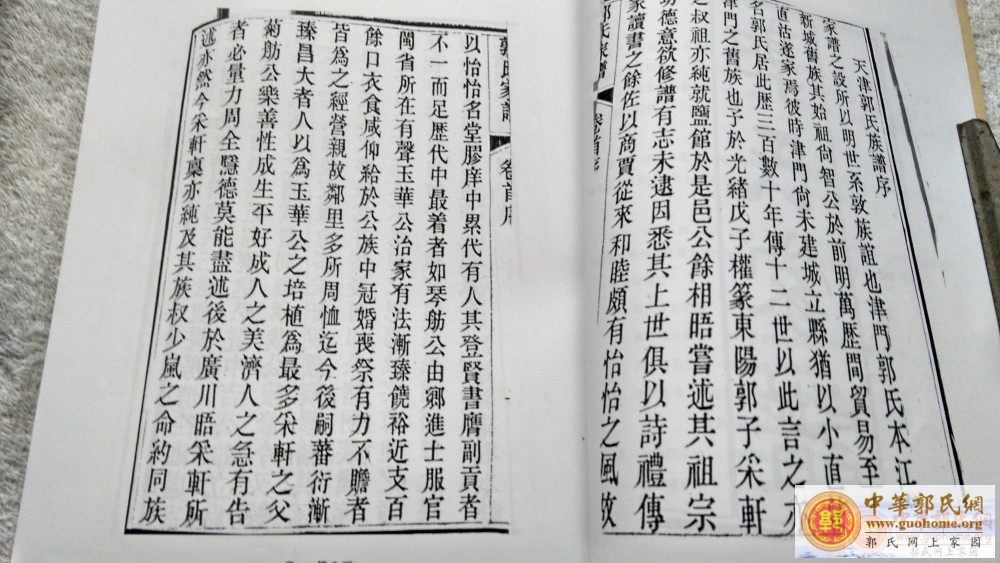 天津郭氏族譜序
家譜之設所以明世系敦族誼也津門郭氏本江
新城舊族其始祖尙智公於前明萬歷間貿易至
直沽遂家焉彼時津門尙未建城立縣猶以小直
名郭氏居此歷三百數十年傳十二世以此言之
津門之舊族也予於光緒戊子權篆東陽郭子采軒
之叔祖亦純就鹽館於是邑公餘相晤嘗述其祖宗
功德意欲修譜有志未逮因悉其上世俱以詩禮傳
家讀書之餘佐以商賈從來和睦頗有怡怡之風故
郭氏家譜
卷首序
以怡怡名堂膠庠中累代有人其登賢書膺副貢者
不一而足歷代中最着者如琴舫公由鄉進士服官
閩省所在有聲玉華公治家有法漸臻饒裕近支百
餘口衣食咸仰給於公族中冠婚喪祭有力不贍者
皆爲之經營親故鄰里多所周恤迄今後嗣蕃衍漸
臻昌大者人以爲玉華公之培植爲最多采軒之父
菊舫公樂善性成生平好成人之美濟人之急有告
者必量力周全隱德莫能盡述後於廣川晤采軒所
述亦然今采軒稟亦純及其族叔少嵐之命約同族
中華郭氏網
www.guohome.org
郭氏网上家园